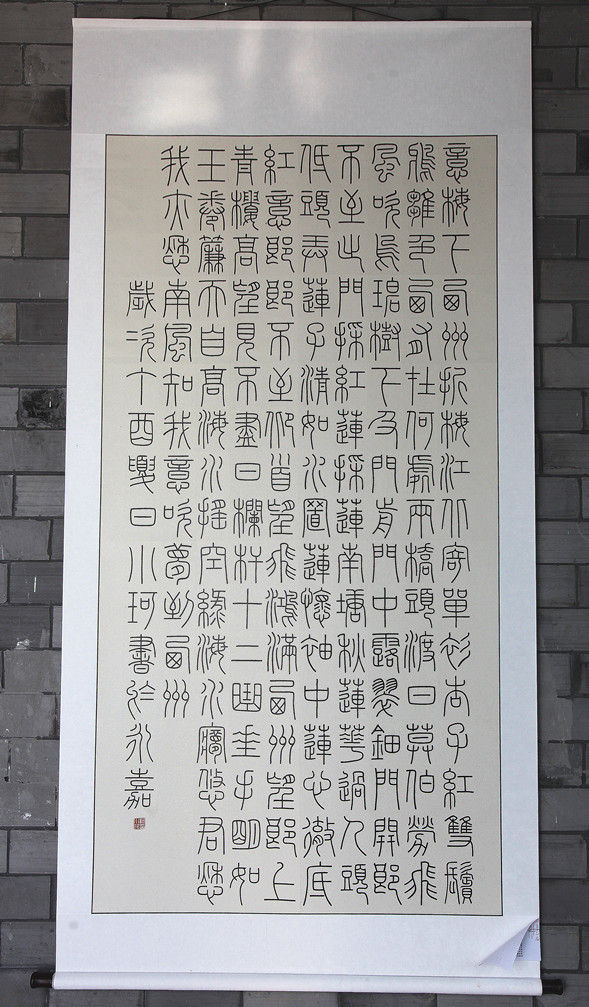 意梅下西州折梅江北寄單衫杏子紅雙鬢
鴉雛色西在何處兩橋頭渡日莫伯勞飛
風吹烏桕樹下及門前門中露翠鈿門開郎
不至出門採紅蓮採蓮南塘秋蓮華過人頭
低頭弄蓮子清如水置蓮懷袖中蓮心徹底
紅意郎郎不至仰首望飛鴻滿西州望郎上
青樓高望見不盡日欄杆十二曲垂手明如
玉卷簾天自高海水搖空綠海水夢悠君愁
我亦愁南風知我意吹夢到西州
歲次丁酉夏日小珂書於永嘉